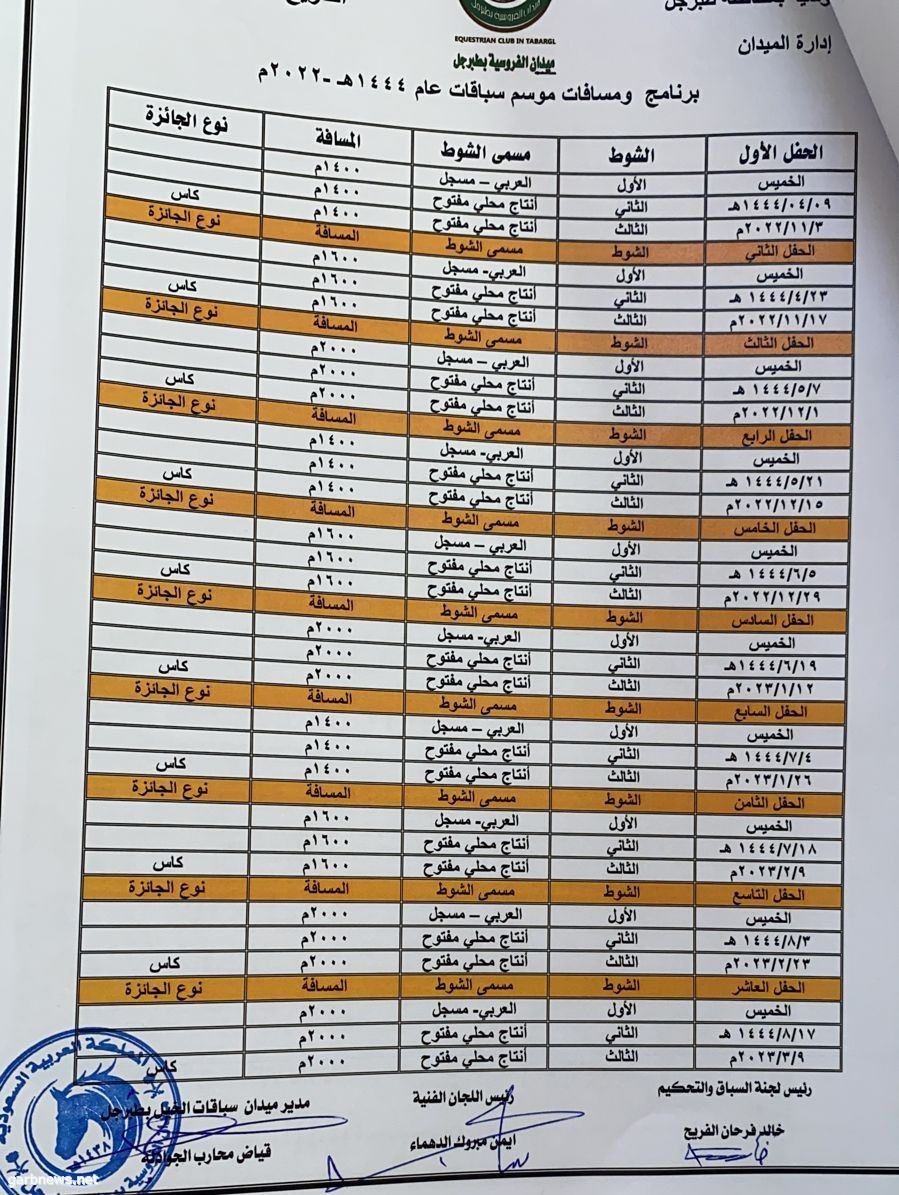 بمحافظة طبرجل
التاريخ
إدارة الميدان
ميدان الفروسية بطبرجل
EQUESTRIAN CLUB IN TABARGL
ميدان الفروسية بطبرجل
برنامج ومسافات موسم سباقات عام ١٤٤٤هـ -٢٠٢٢م
الحفل الأول الشوط مسمى الشوط المسافة نوع الجائزة
الخميس الأول العربي – مسجل ١٤٠٠م
١٤٤٤/٠٤/٠٩هـ الثاني أنتاج محلي مفتوح ١٤٠٠م
٢٠٢٢/١١/٣م الثالث أنتاج محلي مفتوح ١٤٠٠م كاس
الحفل الثاني الشوط مسمى الشوط المسافة نوع الجائزة
الخميس الأول العربي- مسجل ١٦٠٠م
١٤٤٤/٤/٢٣ هـ الثاني أنتاج محلي مفتوح ١٦٠٠م
٢٠٢٢/١١/١٧م الثالث أنتاج محلي مفتوح ١٦٠٠م كاس
الحفل الثالث الشوط مسمى الشوط المسافة نوع الجائزة
الخميس الأول العربي – مسجل ٢٠٠٠م
١٤٤٤/٥/٧ هـ الثاني أنتاج محلي مفتوح ٢٠٠٠م
٢٠٢٢/١٢/١م الثالث أنتاج محلي مفتوح ٢٠٠٠م كاس
الحفل الرابع الشوط مسمى الشوط المسافة نوع الجائزة
الخميس الأول العربي- مسجل ١٤٠٠م
١٤٤٤/٥/٢١ هـ الثاني أنتاج محلي مفتوح ١٤٠٠م
٢٠٢٢/١٢/١٥م الثالث أنتاج محلي مفتوح ١٤٠٠م كاس
الحفل الخامس الشوط مسمى الشوط المسافة نوع الجائزة
الخميس الأول العربي – مسجل ١٦٠٠م
١٤٤٤/٦/٥ هـ الثاني أنتاج محلي مفتوح ١٦٠٠م
٢٠٢٢/١٢/٢٩م الثالث أنتاج محلي مفتوح ١٦٠٠م كاس
الحفل السادس الشوط مسمى الشوط المسافة نوع الجائزة
الخميس الأول العربي- مسجل ٢٠٠٠م
١٤٤٤/٦/١٩هـ الثاني أنتاج محلي مفتوح ٢٠٠٠م
٢٠٢٣/١/١٢م الثالث أنتاج محلي مفتوح ٢٠٠٠م كاس
الحفل السابع الشوط مسمى الشوط المسافة نوع الجائزة
الخميس الأول العربي – مسجل ١٤٠٠م
١٤٤٤/٧/٤ هـ الثاني أنتاج محلي مفتوح ١٤٠٠م
٢٠٢٣/١/٢٦م الثالث أنتاج محلي مفتوح ١٤٠٠م كاس
الحفل الثامن الشوط مسمى الشوط المسافة نوع الجائزة
الخميس الأول العربي- مسجل ١٦٠٠م
١٤٤٤/٧/١٨ هـ الثاني أنتاج محلي مفتوح ١٦٠٠م
٢٠٢٣/٢/٩م الثالث أنتاج محلي مفتوح ١٦٠٠م كاس
الحفل التاسع الشوط مسمى الشوط المسافة نوع الجائزة
الخميس الأول العربي – مسجل ٢٠٠٠م
١٤٤٤/٨/٣ هـ الثاني أنتاج محلي مفتوح ٢٠٠٠م
٢٠٢٣/٢/٢٣م الثالث أنتاج محلي مفتوح ٢٠٠٠م كاس
الحفل العاشر الشوط مسمى الشوط المسافة نوع الجائزة
الخميس الأول العربي- مسجل ٢٠٠٠م
١٤٤٤/٨/١٧ هـ الثاني أنتاج محلي مفتوح ٢٠٠٠م
٢٠٢٣/٣/٩م الثالث أنتاج محلي مفتوح ٢٠٠٠م كاس
رئيس لجنة السباق والتحكيم رئيس اللجان الفنية مدير ميدان سباقات الخيل بطبرجل
خالد فرحان الفريح ايمن مبروك الدهماء قياض محارب الجوادلة
المملكة العربية السعودية
١٤٣٨هـ
garbnews.net